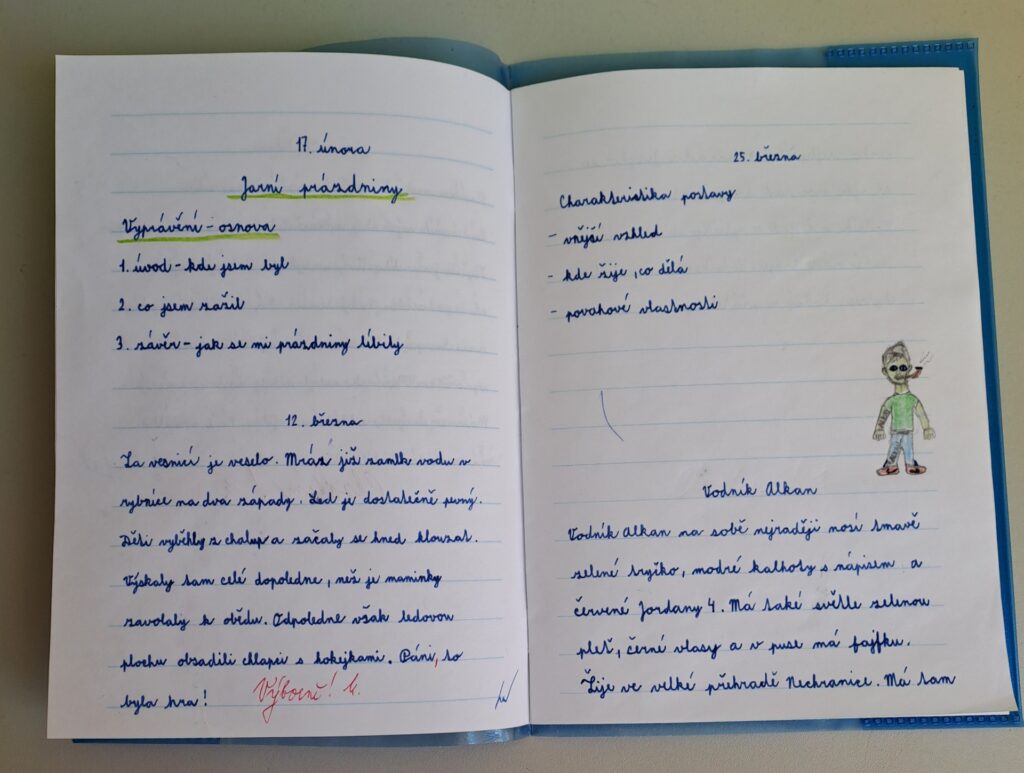 17. února
Jarní prázdniny
Vyprávění - osnova
1. úvod - kde jsem byl
2. co jsem zažil
3. závěr - jak se mi prázdniny líbily
12. března
Za vesnicí je veselo. Mráz již zamkl vodu v
rybníce na dva západy. Led je dostatečně pevný.
Děti vyběhly z chalup a začaly se hned klouzat.
Výskaly tam celé dopoledne, než je maminky
zavolaly k obědu. Odpoledne však ledovou
plochu obsadili chlapci s hokejkami. Páni, to
byla hra!
Výborně!
25. března
Charakteristika postavy
- vnější vzhled
- kde žije, co dělá
- povahové vlastnosti
Vodník Alkan
Vodník Alkan na sobě nejraději nosí tmavě
zelené tryčko, modré kalhoty s nápisem a
červené Jordany 4. Má také světle zelenou
pleť, černé vlasy a v puse má fajfku.
Žije ve velké přehradě Nechranice. Má tam